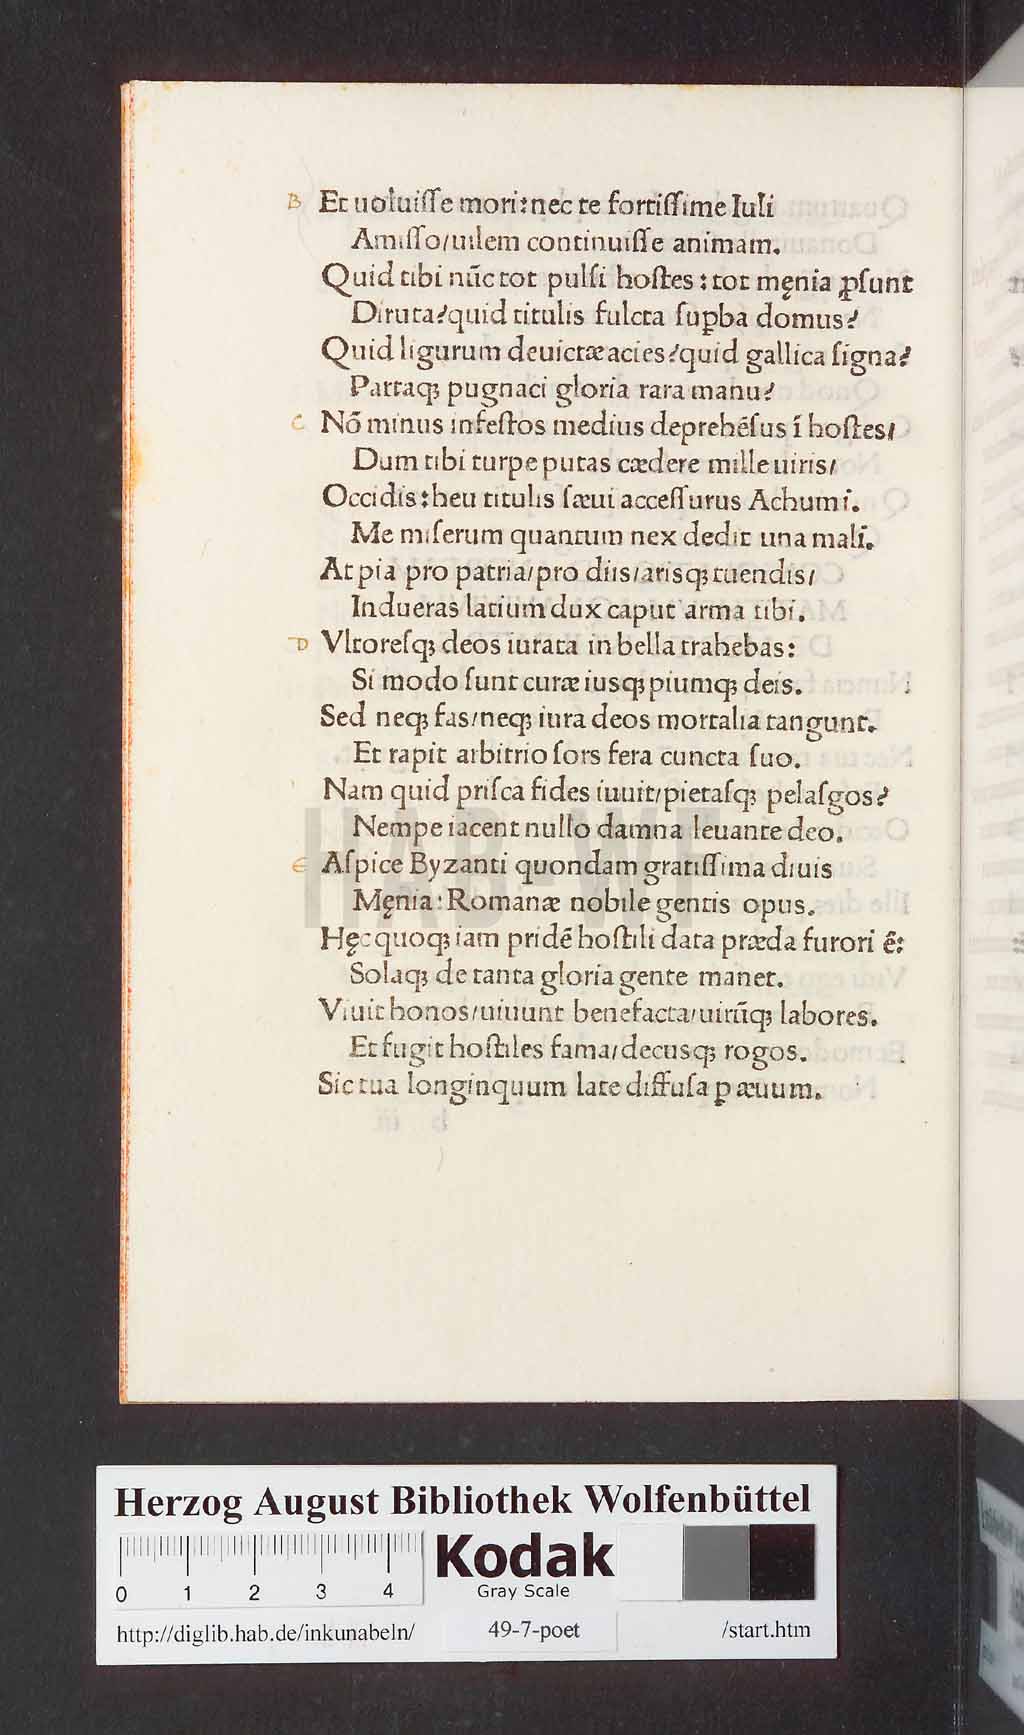 B Et uoluiſſe mori: nec te fortiſſime Iuli
Amiſſo/uilem continuiſſe animam.
Quid tibi nũc tot pulſi hoſtes: tot męnia ꝓſunt
Diruta? quid titulis fulcta ſuꝑba domus?
Quid ligurum deuictæ acies? quid gallica ſigna?
Partaqꝫ pugnaci gloria rara manu?
C Nõ minus infeſtos medius deprehẽſus ĩ hoſtes/
Dum tibi turpe putas cædere mille uiris/
Occidis: heu titulis ſæui acceſſurus Achumi.
Me miſerum quantum nex dedit una mali.
At pia pro patria/pro diis/arisqꝫ tuendis/
Indueras latium dux caput arma tibi.
D Vltoreſqꝫ deos iurata in bella trahebas:
Si modo ſunt curæ iusqꝫ piumqꝫ deis.
Sed neqꝫ fas/neqꝫ iura deos mortalia tangunt.
Et rapit arbitrio ſors fera cuncta ſuo.
Nam quid priſca fides iuuit/pietaſqꝫ pelaſgos?
Nempe iacent nullo damna leuante deo.
E Aſpice Byzanti quondam gratiſſima diuis
Męnia: Romanæ nobile gentis opus.
Hęc quoqꝫ iam pridẽ hoſtili data præda furori ẽ:
Solaqꝫ de tanta gloria gente manet.
Viuit honos/uiuunt benefacta/uirũqꝫ labores.
Et fugit hoſtiles fama/decusqꝫ rogos.
Sic tua longinquum late diffuſa ꝑ æuum.
HAB-WF
Herzog August Bibliothek Wolfenbüttel
0 1 2 3 4
Kodak
Gray Scale
http://diglib.hab.de/inkunabeln/ 49-7-poet /start.htm